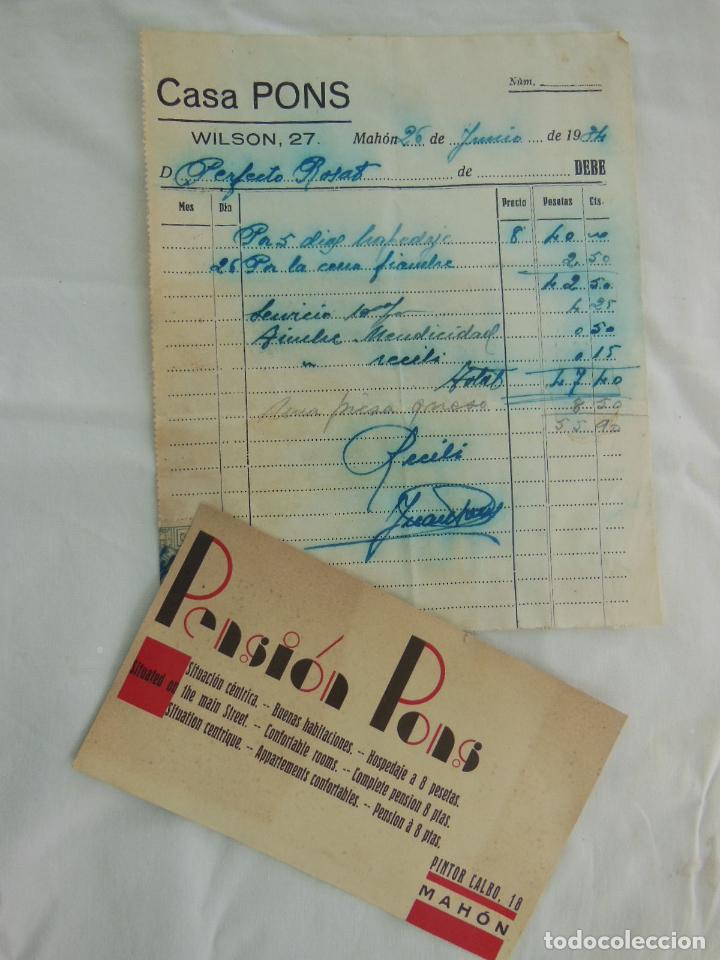 Casa PONS
Núm.
WILSON, 27. Mahón 26 de Junio de 1934
D Perfecto Rosat de DEBE
Mes Día Precio Pesetas Cts.
Por 5 dias hospedaje 8 40 00
26 Por la cena fiambre 2 50
42 50
Servicio 10 % 4 25
Timbre Mendicidad 0 50
" recibi 0 15
Total 47 40
una pieza queso 8 50
55 90
Recibi
Juan Pons
Pensión Pons
Situación céntrica. -- Buenas habitaciones. -- Hospedaje a 8 pesetas.
Situated on the main Street. -- Confortable rooms. -- Complete pension 8 ptas.
Situation centrique. -- Appartements confortables. -- Pension à 8 ptas.
PINTOR CALBO, 18
MAHÓN
todocoleccion.net